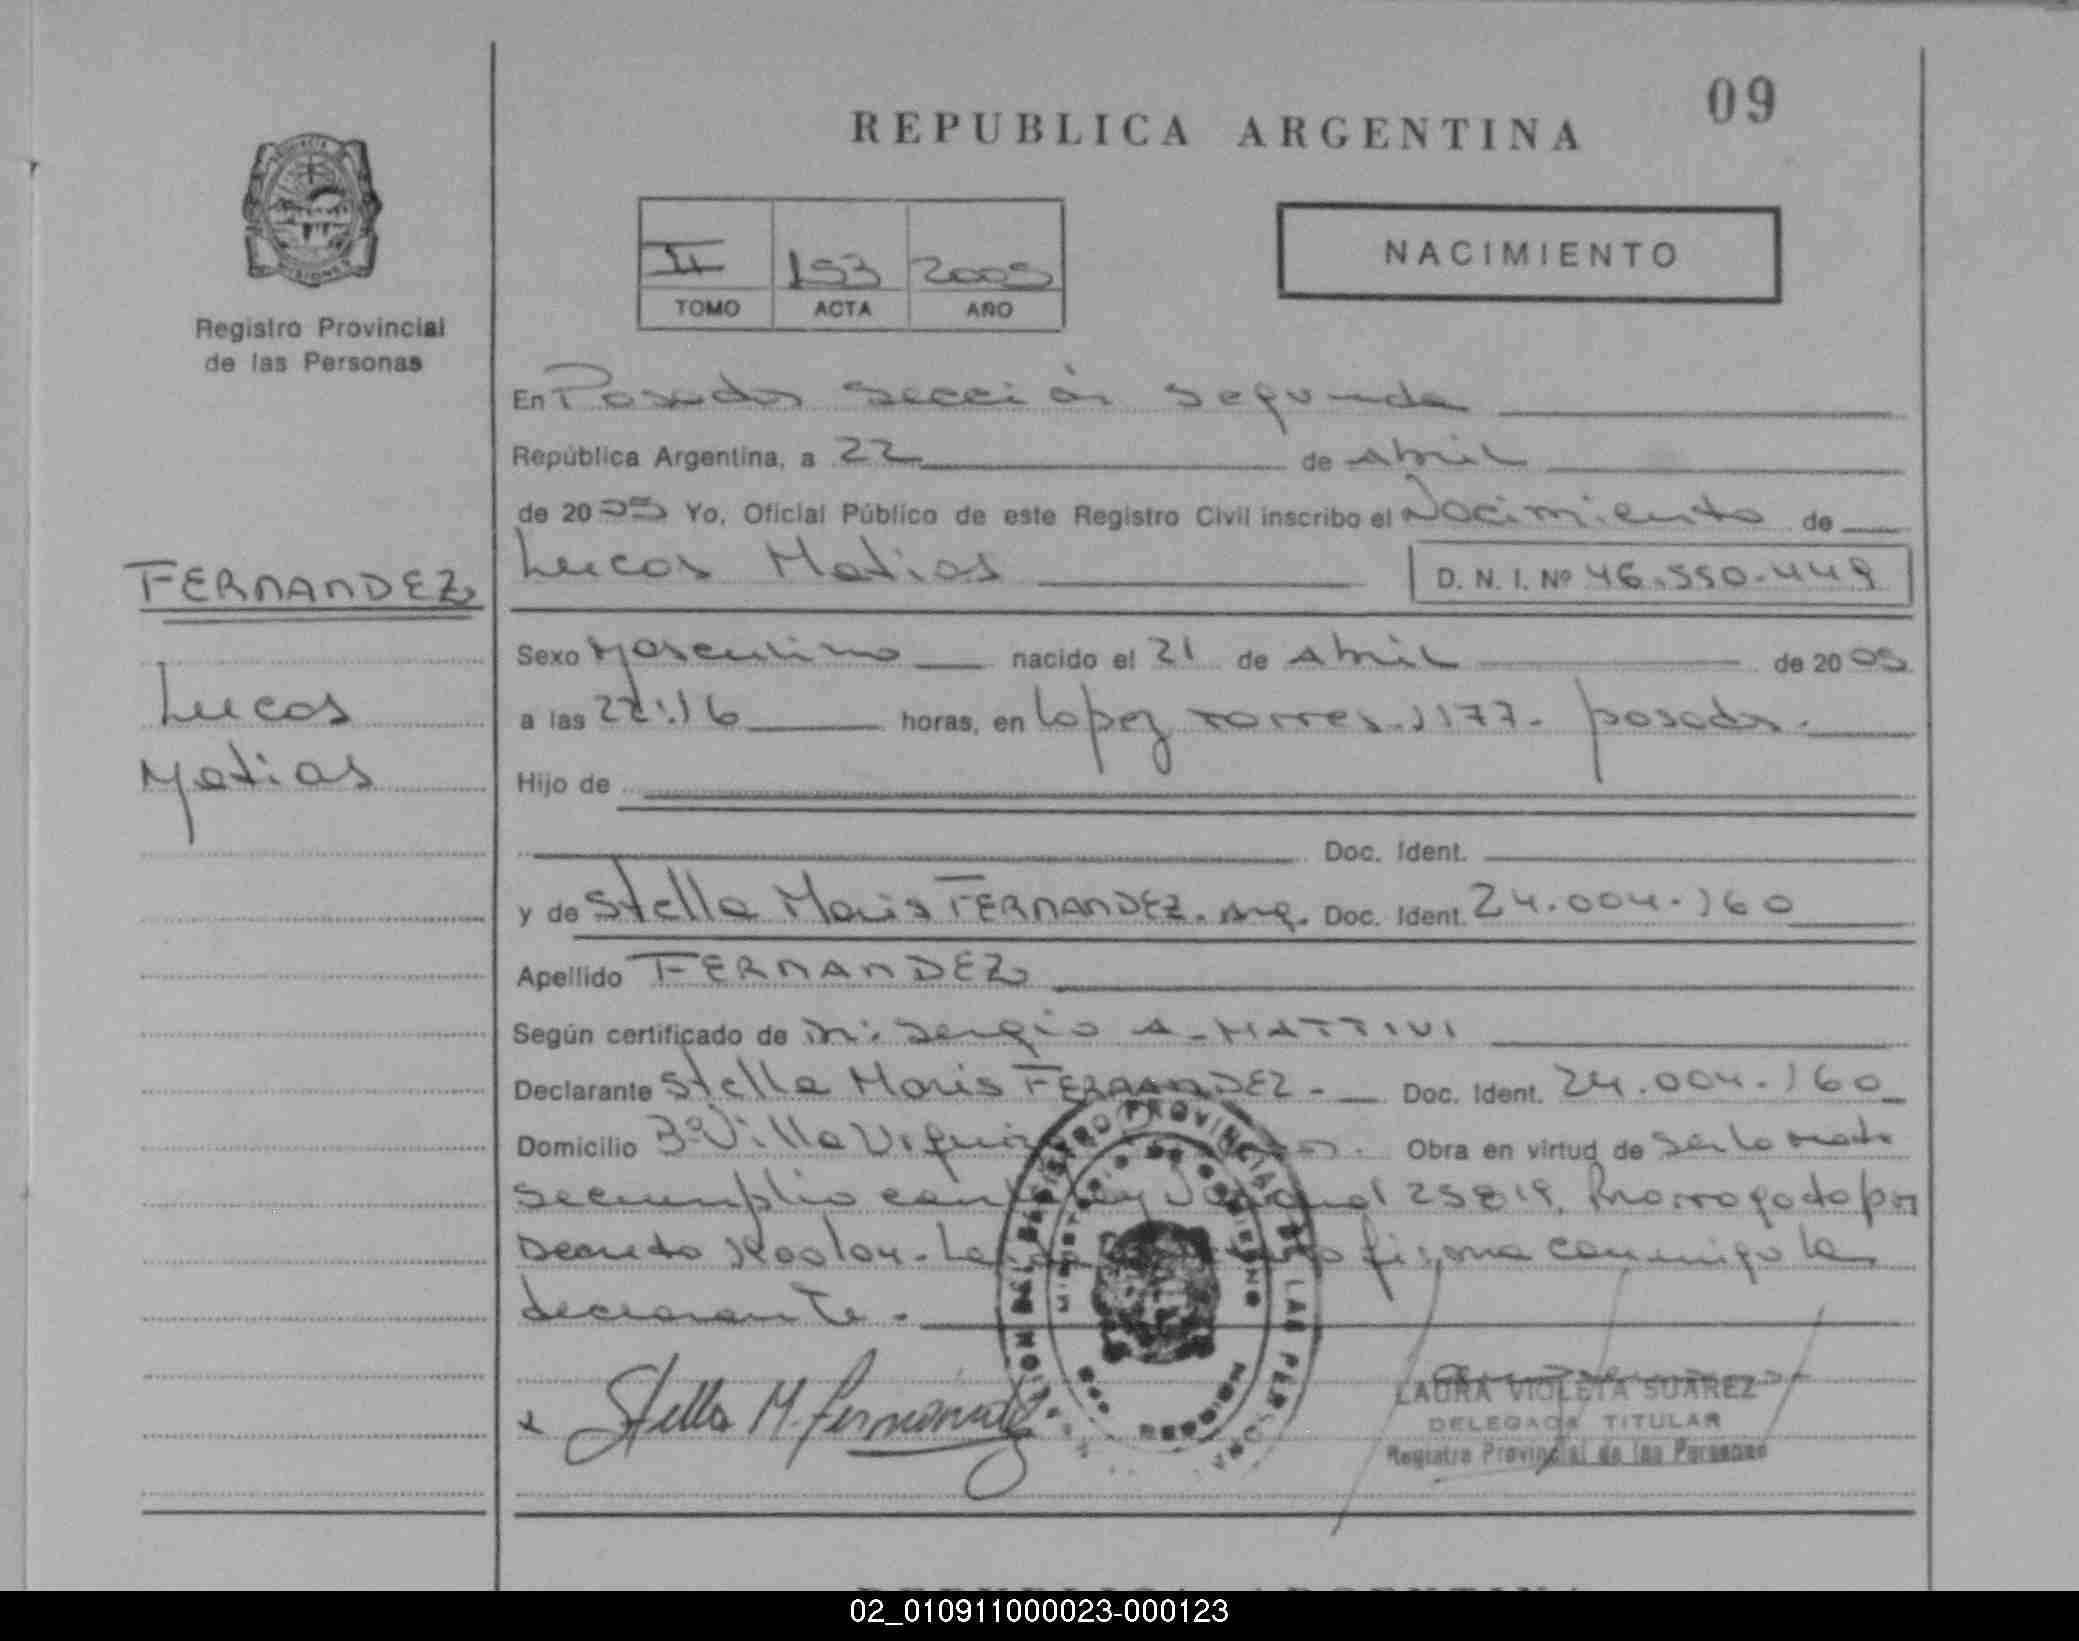 09
REPUBLICA ARGENTINA
NACIMIENTO
II 153 2005
TOMO ACTA AÑO
Registro Provincial
de las Personas
En Posadas sección segunda
República Argentina, a 22 de Abril
de 2005 Yo, Oficial Público de este Registro Civil inscribo el Nacimiento de
Lucas Matias D. N. I. Nº 46.550.449
FERNANDEZ
Lucas
Matias
Sexo Masculino nacido el 21 de Abril de 2005
a las 22:16 horas, en Lopez Torres 1177- posadas.
Hijo de
Doc. Ident.
y de Stella Maris FERNANDEZ. Arg. Doc. Ident. 24.004.160
Apellido FERNANDEZ
Según certificado de Dr: Sergio A. MATTIVI
Declarante Stella Maris FERNANDEZ - Doc. Ident. 24.004.160
Domicilio Bº Villa Urquiza Obra en virtud de ser la madre
se cumplio con Ley 25819. Prorrogado por
Decreto firma conmigo la
declarante.
Stella M. Fernandez
REGISTRO PROVINCIAL DE LAS PERSONAS
MINISTERIO DE GOBIERNO
LAURA VIOLETA SUAREZ
DELEGADA TITULAR
Registro Provincial de las Personas
02_010911000023-000123